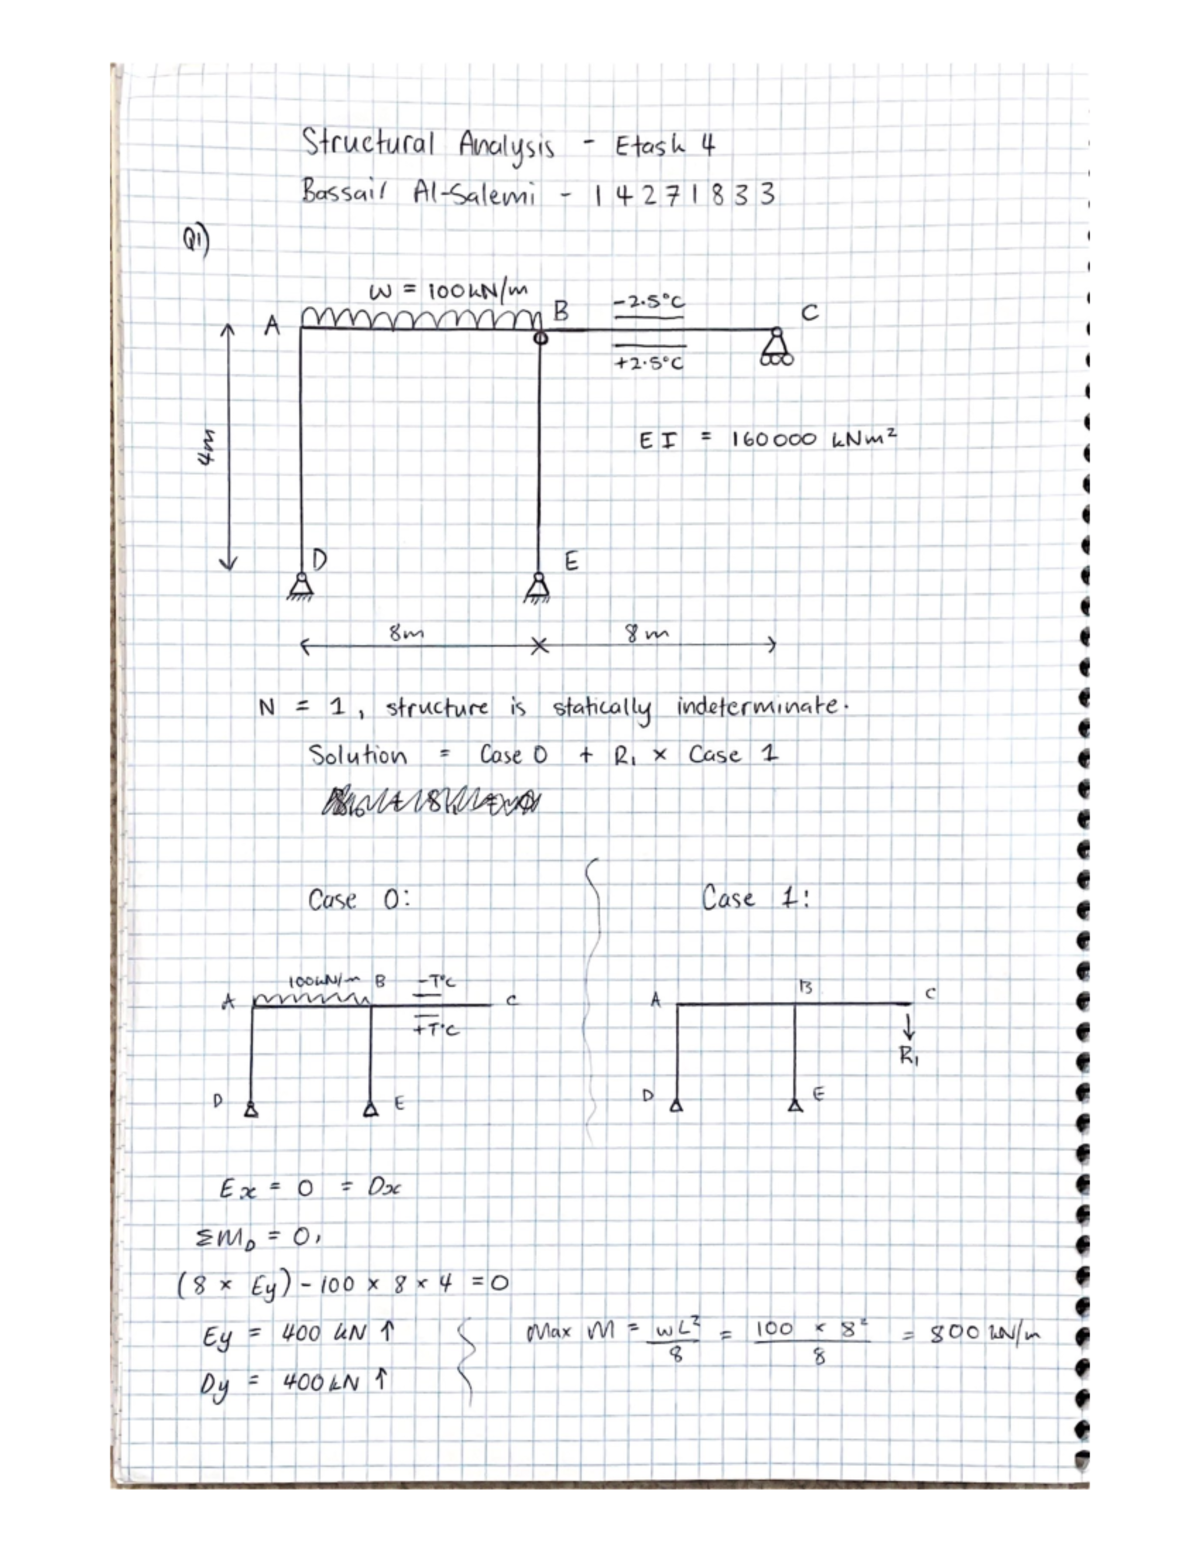 Structural Analysis - Etask 4
Bassail Al-Salemi - 14271833
Q1)
w = 100kN/m
A
B
-2.5°C
+2.5°C
C
4m
EI = 160000 kNm²
D
E
8m
8m
N = 1, structure is statically indeterminate.
Solution = Case 0 + R₁ × Case 1
Case 0:
Case 1:
100kN/m B -T°C
A
C
+T°C
D
E
A
B
C
R₁
D
E
Ex = 0 = Dx
ΣM_D = 0,
(8 × Ey) - 100 × 8 × 4 = 0
Ey = 400 kN ↑
Max M = wL²/8 = 100 × 8²/8 = 800 kN/m
Dy = 400kN ↑